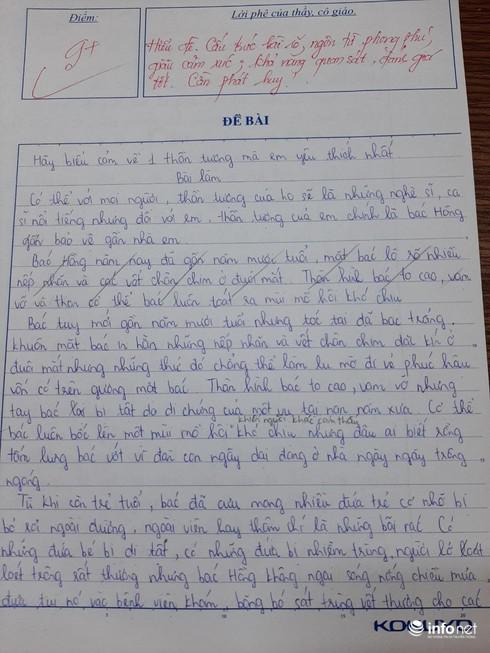 Điểm:
9+
Lời phê của thầy, cô giáo.
Hiểu đề. Cấu trúc bài rõ, ngôn từ phong phú,
giàu cảm xúc; khả năng quan sát, đánh giá
tốt. Cần phát huy!
ĐỀ BÀI
Hãy biểu cảm về 1 thần tượng mà em yêu thích nhất
Bài làm
Có thể với mọi người, thần tượng của họ sẽ là những nghệ sĩ, ca
sĩ nổi tiếng nhưng đối với em, thần tượng của em chính là bác Hồng
bảo vệ gần nhà em.
Bác Hồng năm nay đã gần năm mươi tuổi, mặt bác lộ rõ nhiều
nếp nhăn và các vết chân chim ở đuôi mắt. Thân hình bác to cao, vạm
vỡ và thân cơ thể bác luôn toát ra mùi mồ hôi khó chịu
Bác tuy mới gần năm mươi tuổi nhưng tóc tai đã bạc trắng,
khuôn mặt bác in hằn những nếp nhăn và vết chân chim dài kín ở
đuôi mắt nhưng những thứ đó chẳng thể làm lu mờ đi vẻ phúc hậu
vốn có trên gương mặt bác. Thân hình bác to cao, vạm vỡ nhưng
tay bác lại bị tật do di chứng của một vụ tai nạn năm xưa. Cơ thể
khiến người khác cảm thấy
bác luôn bốc lên một mùi mồ hôi khó chịu nhưng đâu ai biết rằng
tấm lưng bác vất vả vì đàn con ngây dại đang ở nhà ngày ngày trông
ngóng.
Từ khi còn trẻ tuổi, bác đã cưu mang nhiều đứa trẻ cơ nhỡ bị
bỏ rơi ngoài đường, ngoài viện hay thậm chí là những bãi rác. Có
những đứa bé bị dị tật, có những đứa bị nhiễm trùng, người lở loét
loét trông rất thương nhưng bác Hồng không ngại sáng, nắng chiều mưa
đưa tụi nó vào bệnh viện khám, băng bó sát trùng vết thương cho các
infonet